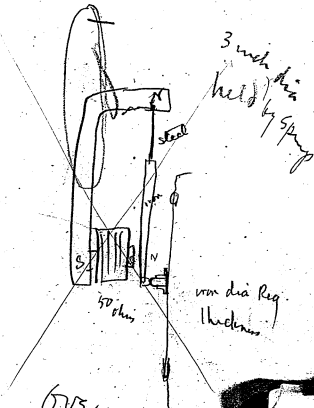 3 inch dia
held
by Spring
N
steel
iron
S
N
50 ohms
iron dia Reg.
thickness